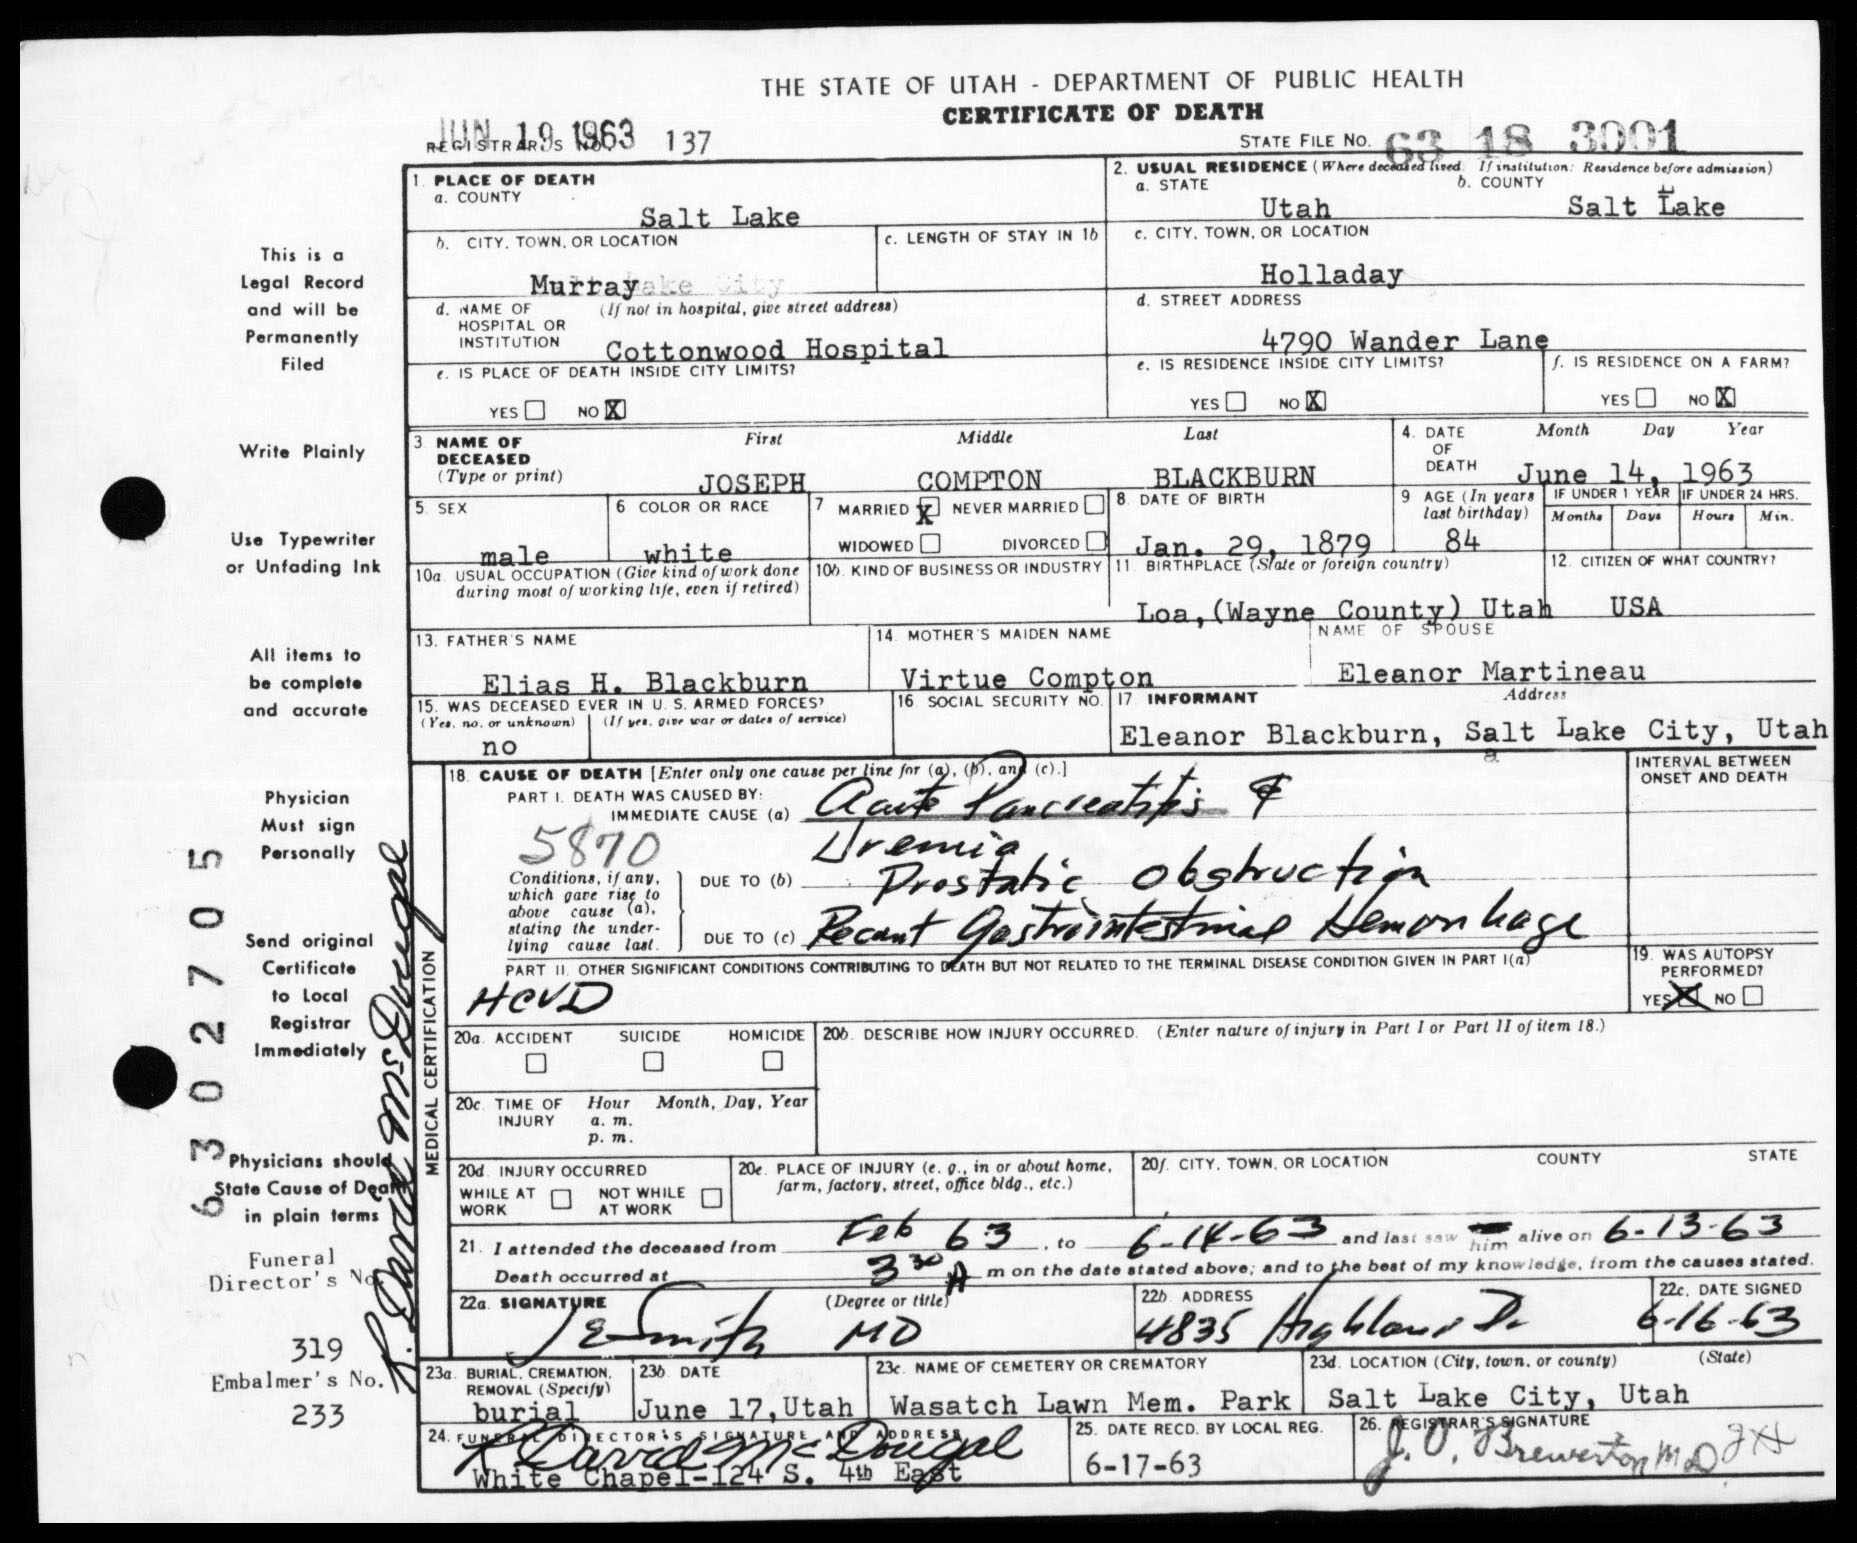 THE STATE OF UTAH - DEPARTMENT OF PUBLIC HEALTH
CERTIFICATE OF DEATH
JUN 19 1963
REGISTRAR'S NO. 137
STATE FILE NO. 63 18 3001
1. PLACE OF DEATH
a. COUNTY
Salt Lake
2. USUAL RESIDENCE (Where deceased lived. If institution: Residence before admission)
a. STATE b. COUNTY
Utah Salt Lake
b. CITY, TOWN, OR LOCATION
Murray
c. LENGTH OF STAY IN 1b
c. CITY, TOWN, OR LOCATION
Holladay
d. NAME OF HOSPITAL OR INSTITUTION (If not in hospital, give street address)
Cottonwood Hospital
d. STREET ADDRESS
4790 Wander Lane
e. IS PLACE OF DEATH INSIDE CITY LIMITS?
YES NO X
e. IS RESIDENCE INSIDE CITY LIMITS?
YES NO X
f. IS RESIDENCE ON A FARM?
YES NO X
3. NAME OF DECEASED (Type or print)
First Middle Last
JOSEPH COMPTON BLACKBURN
4. DATE OF DEATH Month Day Year
June 14, 1963
5. SEX
male
6 COLOR OR RACE
white
7 MARRIED X NEVER MARRIED
WIDOWED DIVORCED
8. DATE OF BIRTH
Jan. 29, 1879
9 AGE (In years last birthday)
84
IF UNDER 1 YEAR IF UNDER 24 HRS.
Months Days Hours Min.
10a. USUAL OCCUPATION (Give kind of work done during most of working life, even if retired)
10b. KIND OF BUSINESS OR INDUSTRY
11. BIRTHPLACE (State or foreign country)
Loa, (Wayne County) Utah
12. CITIZEN OF WHAT COUNTRY?
USA
13. FATHER'S NAME
Elias H. Blackburn
14. MOTHER'S MAIDEN NAME
Virtue Compton
NAME OF SPOUSE
Eleanor Martineau
15. WAS DECEASED EVER IN U. S. ARMED FORCES?
(Yes, no, or unknown) (If yes, give war or dates of service)
no
16. SOCIAL SECURITY NO.
17. INFORMANT Address
Eleanor Blackburn, Salt Lake City, Utah
MEDICAL CERTIFICATION
18. CAUSE OF DEATH [Enter only one cause per line for (a), (b), and (c).]
INTERVAL BETWEEN ONSET AND DEATH
PART I. DEATH WAS CAUSED BY:
IMMEDIATE CAUSE (a) Acute Pancreatitis &
Uremia
5870
Conditions, if any, which gave rise to above cause (a), stating the underlying cause last.
DUE TO (b) Prostatic obstruction
DUE TO (c) Recent Gastrointestinal Hemorrhage
PART II. OTHER SIGNIFICANT CONDITIONS CONTRIBUTING TO DEATH BUT NOT RELATED TO THE TERMINAL DISEASE CONDITION GIVEN IN PART I(a)
HCVD
19. WAS AUTOPSY PERFORMED?
YES X NO
20a. ACCIDENT SUICIDE HOMICIDE
20b. DESCRIBE HOW INJURY OCCURRED. (Enter nature of injury in Part I or Part II of item 18.)
20c. TIME OF INJURY Hour Month, Day, Year
a. m.
p. m.
20d. INJURY OCCURRED
WHILE AT WORK NOT WHILE AT WORK
20e. PLACE OF INJURY (e. g., in or about home, farm, factory, street, office bldg., etc.)
20f. CITY, TOWN, OR LOCATION COUNTY STATE
21. I attended the deceased from Feb 63, to 6-14-63 and last saw him alive on 6-13-63
Death occurred at 3 30 A m on the date stated above; and to the best of my knowledge, from the causes stated.
22a. SIGNATURE (Degree or title)
J E Smith MD
22b. ADDRESS
4835 Highland Dr
22c. DATE SIGNED
6-16-63
23a. BURIAL, CREMATION, REMOVAL (Specify)
burial
23b. DATE
June 17, Utah
23c. NAME OF CEMETERY OR CREMATORY
Wasatch Lawn Mem. Park
23d. LOCATION (City, town, or county) (State)
Salt Lake City, Utah
24. FUNERAL DIRECTOR'S SIGNATURE AND ADDRESS
R David McDougal
White Chapel-124 S. 4th East
25. DATE RECD. BY LOCAL REG.
6-17-63
26. REGISTRAR'S SIGNATURE
J. O. Brewerton MD
This is a
Legal Record
and will be
Permanently
Filed
Write Plainly
Use Typewriter
or Unfading Ink
All items to
be complete
and accurate
Physician
Must sign
Personally
Send original
Certificate
to Local
Registrar
Immediately
Physicians should
State Cause of Death
in plain terms
Funeral
Director's No.
319
Embalmer's No.
233
6302705
R. David McDougal